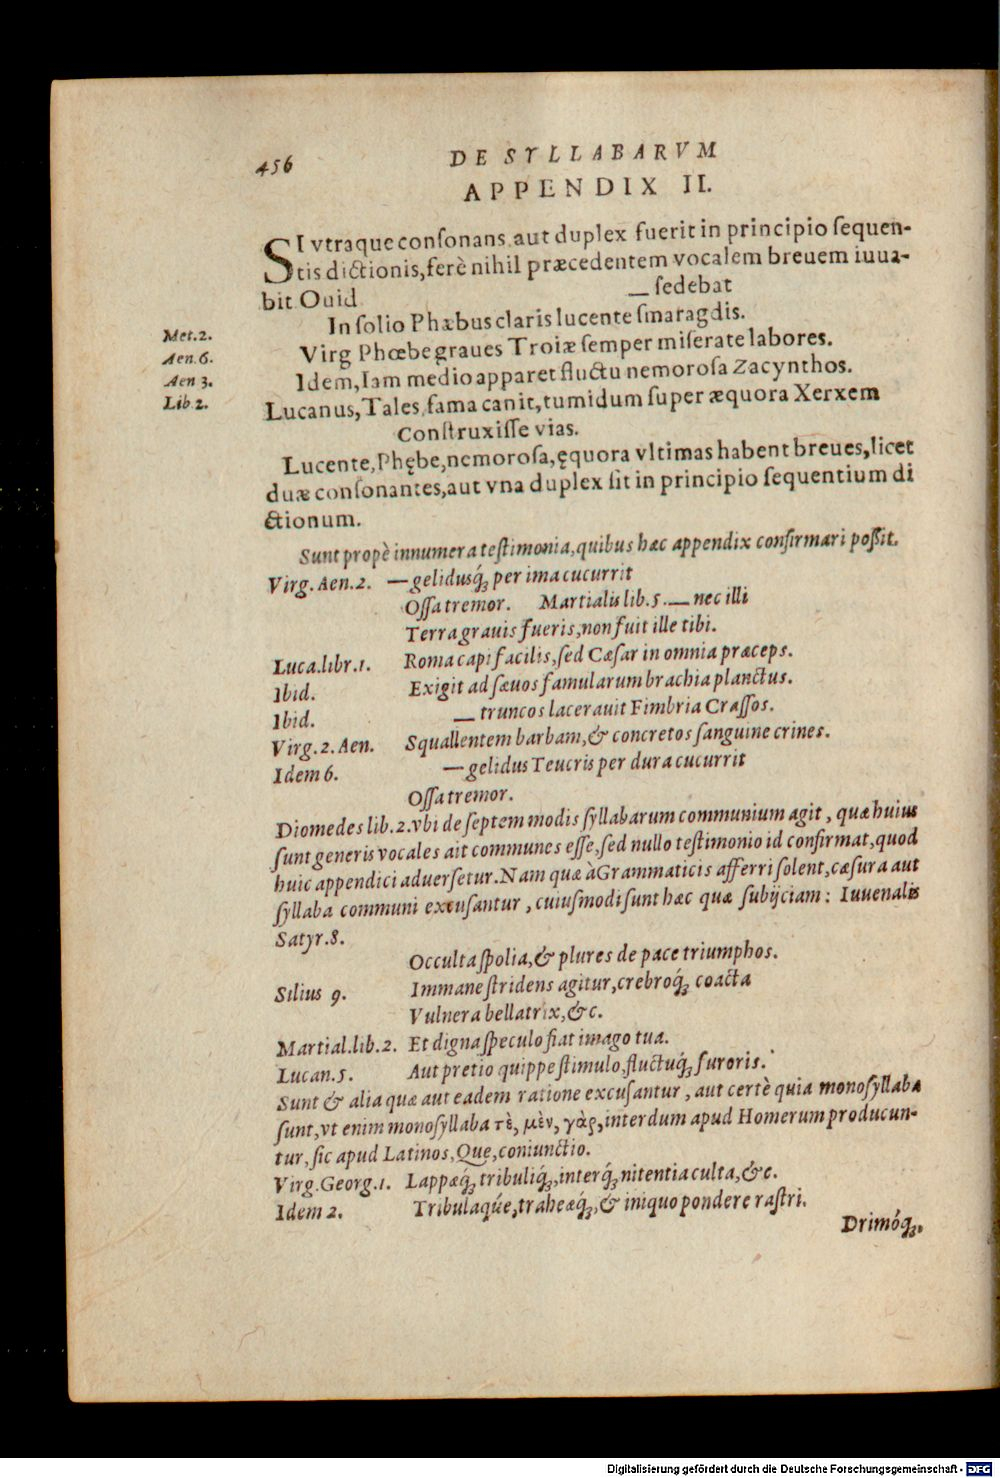 456
DE SYLLABARVM
APPENDIX II.
SI vtraque consonans aut duplex fuerit in principio sequen-
tis dictionis, ferè nihil præcedentem vocalem breuem iuua-
bit Ouid
— sedebat
In solio Phæbus claris lucente smaragdis.
Met. 2.
Virg Phœbe graues Troiæ semper miserate labores.
Aen. 6.
Idem, Iam medio apparet fluctu nemorosa Zacynthos.
Aen 3.
Lucanus, Tales fama canit, tumidum super æquora Xerxem
Lib 2.
Construxisse vias.
Lucente, Phębe, nemorosa, ęquora vltimas habent breues, licet
duæ consonantes, aut vna duplex sit in principio sequentium di
ctionum.
Sunt propè innumera testimonia, quibus hæc appendix confirmari possit.
Virg. Aen. 2. — gelidusq́; per ima cucurrit
Ossa tremor. Martialis lib. 5. — nec illi
Terra grauis fueris, non fuit ille tibi.
Luca. libr. 1. Roma capi facilis, sed Cæsar in omnia præceps.
Ibid. Exigit ad sæuos famularum brachia planctus.
Ibid. — truncos lacerauit Fimbria Crassos.
Virg. 2. Aen. Squallentem barbam, & concretos sanguine crines.
Idem 6. — gelidus Teucris per dura cucurrit
Ossa tremor.
Diomedes lib. 2. vbi de septem modis syllabarum communium agit, quæ huius
sunt generis vocales ait communes esse, sed nullo testimonio id confirmat, quod
huic appendici aduersetur. Nam quæ à Grammaticis afferri solent, cæsura aut
syllaba communi excusantur, cuiusmodi sunt hæc quæ subijciam: Iuuenalis
Satyr. 8.
Occulta spolia, & plures de pace triumphos.
Silius 9. Immane stridens agitur, crebroq́; coacta
Vulnera bellatrix, &c.
Martial. lib. 2. Et digna speculo fiat imago tua.
Lucan. 5. Aut pretio quippe stimulo, fluctuq́; furoris.
Sunt & alia quæ aut eadem ratione excusantur, aut certè quia monosyllaba
sunt, vt enim monosyllaba τὲ, μὲν, γὰρ, interdum apud Homerum producun-
tur, sic apud Latinos, Que, coniunctio.
Virg. Georg. 1. Lappæq́; tribuliq́;, interq́; nitentia culta, &c.
Idem 2. Tribulaqúe, traheæq́;, & iniquo pondere rastri.
Drimóq́;,
Digitalisierung gefördert durch die Deutsche Forschungsgemeinschaft - DFG